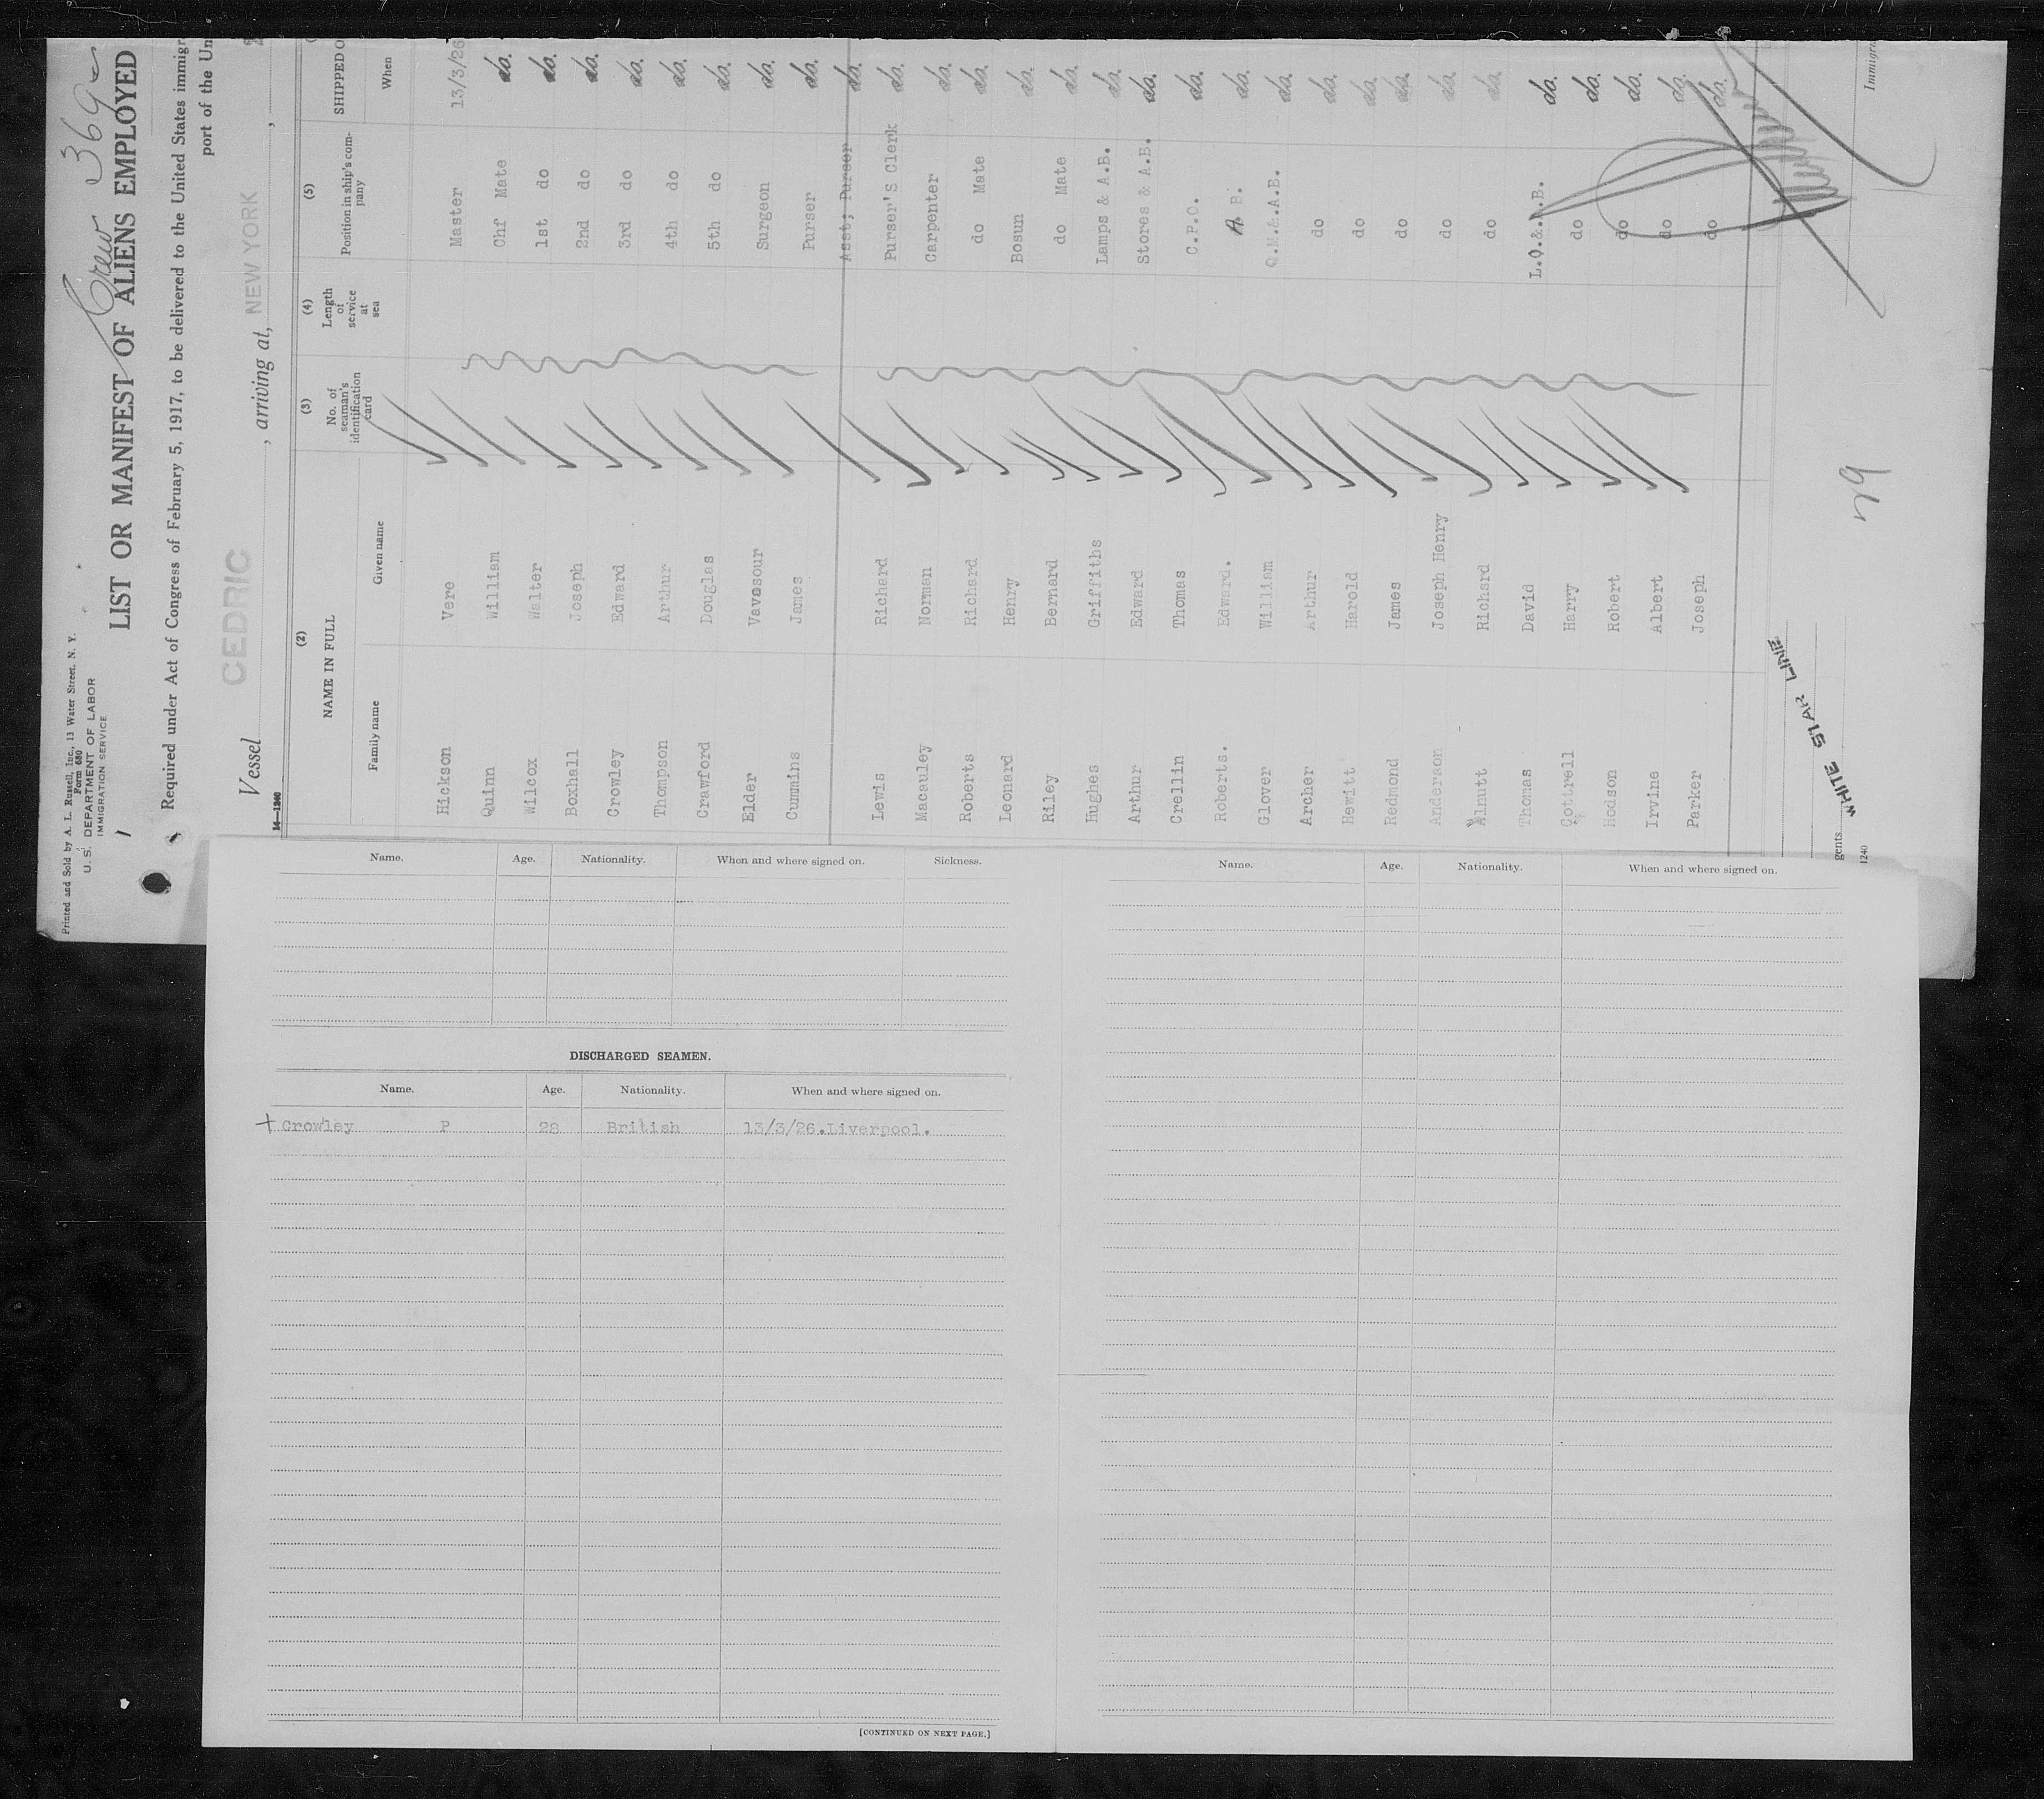 Printed and Sold by A. L. Russell, Inc., 13 Water Street, N. Y.
Form 680
U. S. DEPARTMENT OF LABOR
IMMIGRATION SERVICE
Crew 369
LIST OR MANIFEST OF ALIENS EMPLOYED
Required under Act of Congress of February 5, 1917, to be delivered to the United States immigr
port of the Un
Vessel CEDRIC, arriving at, NEW YORK,
14—1240
(2) (3) (4) (5) SHIPPED O
NAME IN FULL No. of seaman's identification card Length of service at sea Position in ship's company When
Family name Given name
Hickson Vere Master 13/3/26
Quinn William Chf Mate do.
Wilcox Walter 1st do do.
Boxhall Joseph 2nd do do.
Crowley Edward 3rd do do.
Thompson Arthur 4th do do.
Crawford Douglas 5th do do.
Elder Vavasour Surgeon do.
Cummins James Purser do.
Asst; Purser do.
Lewis Richard Purser'S Clerk do.
Macauley Norman Carpenter do.
Roberts Richard do Mate do.
Leonard Henry Bosun do.
Riley Bernard do Mate do.
Hughes Griffiths Lamps & A.B. do.
Arthur Edward Stores & A.B. do.
Crellin Thomas C.P.O. do.
Roberts. Edward. A B. do.
Glover William Q.M.&.A.B. do.
Archer Arthur do do.
Hewitt Harold do do.
Redmond James do do.
Anderson Joseph Henry do do.
Alnutt Richard do do.
Thomas David L.O.&.A.B. do.
Cottrell Harry do do.
Hodson Robert do do.
Irvine Albert do do.
Parker Joseph do do.
gents WHITE STAR LINE
29
Immigra
1240
Name. Age. Nationality. When and where signed on. Sickness.
DISCHARGED SEAMEN.
Name. Age. Nationality. When and where signed on.
+ Crowley P 28 British 13/3/26.Liverpool.
[CONTINUED ON NEXT PAGE.]
Name. Age. Nationality. When and where signed on.